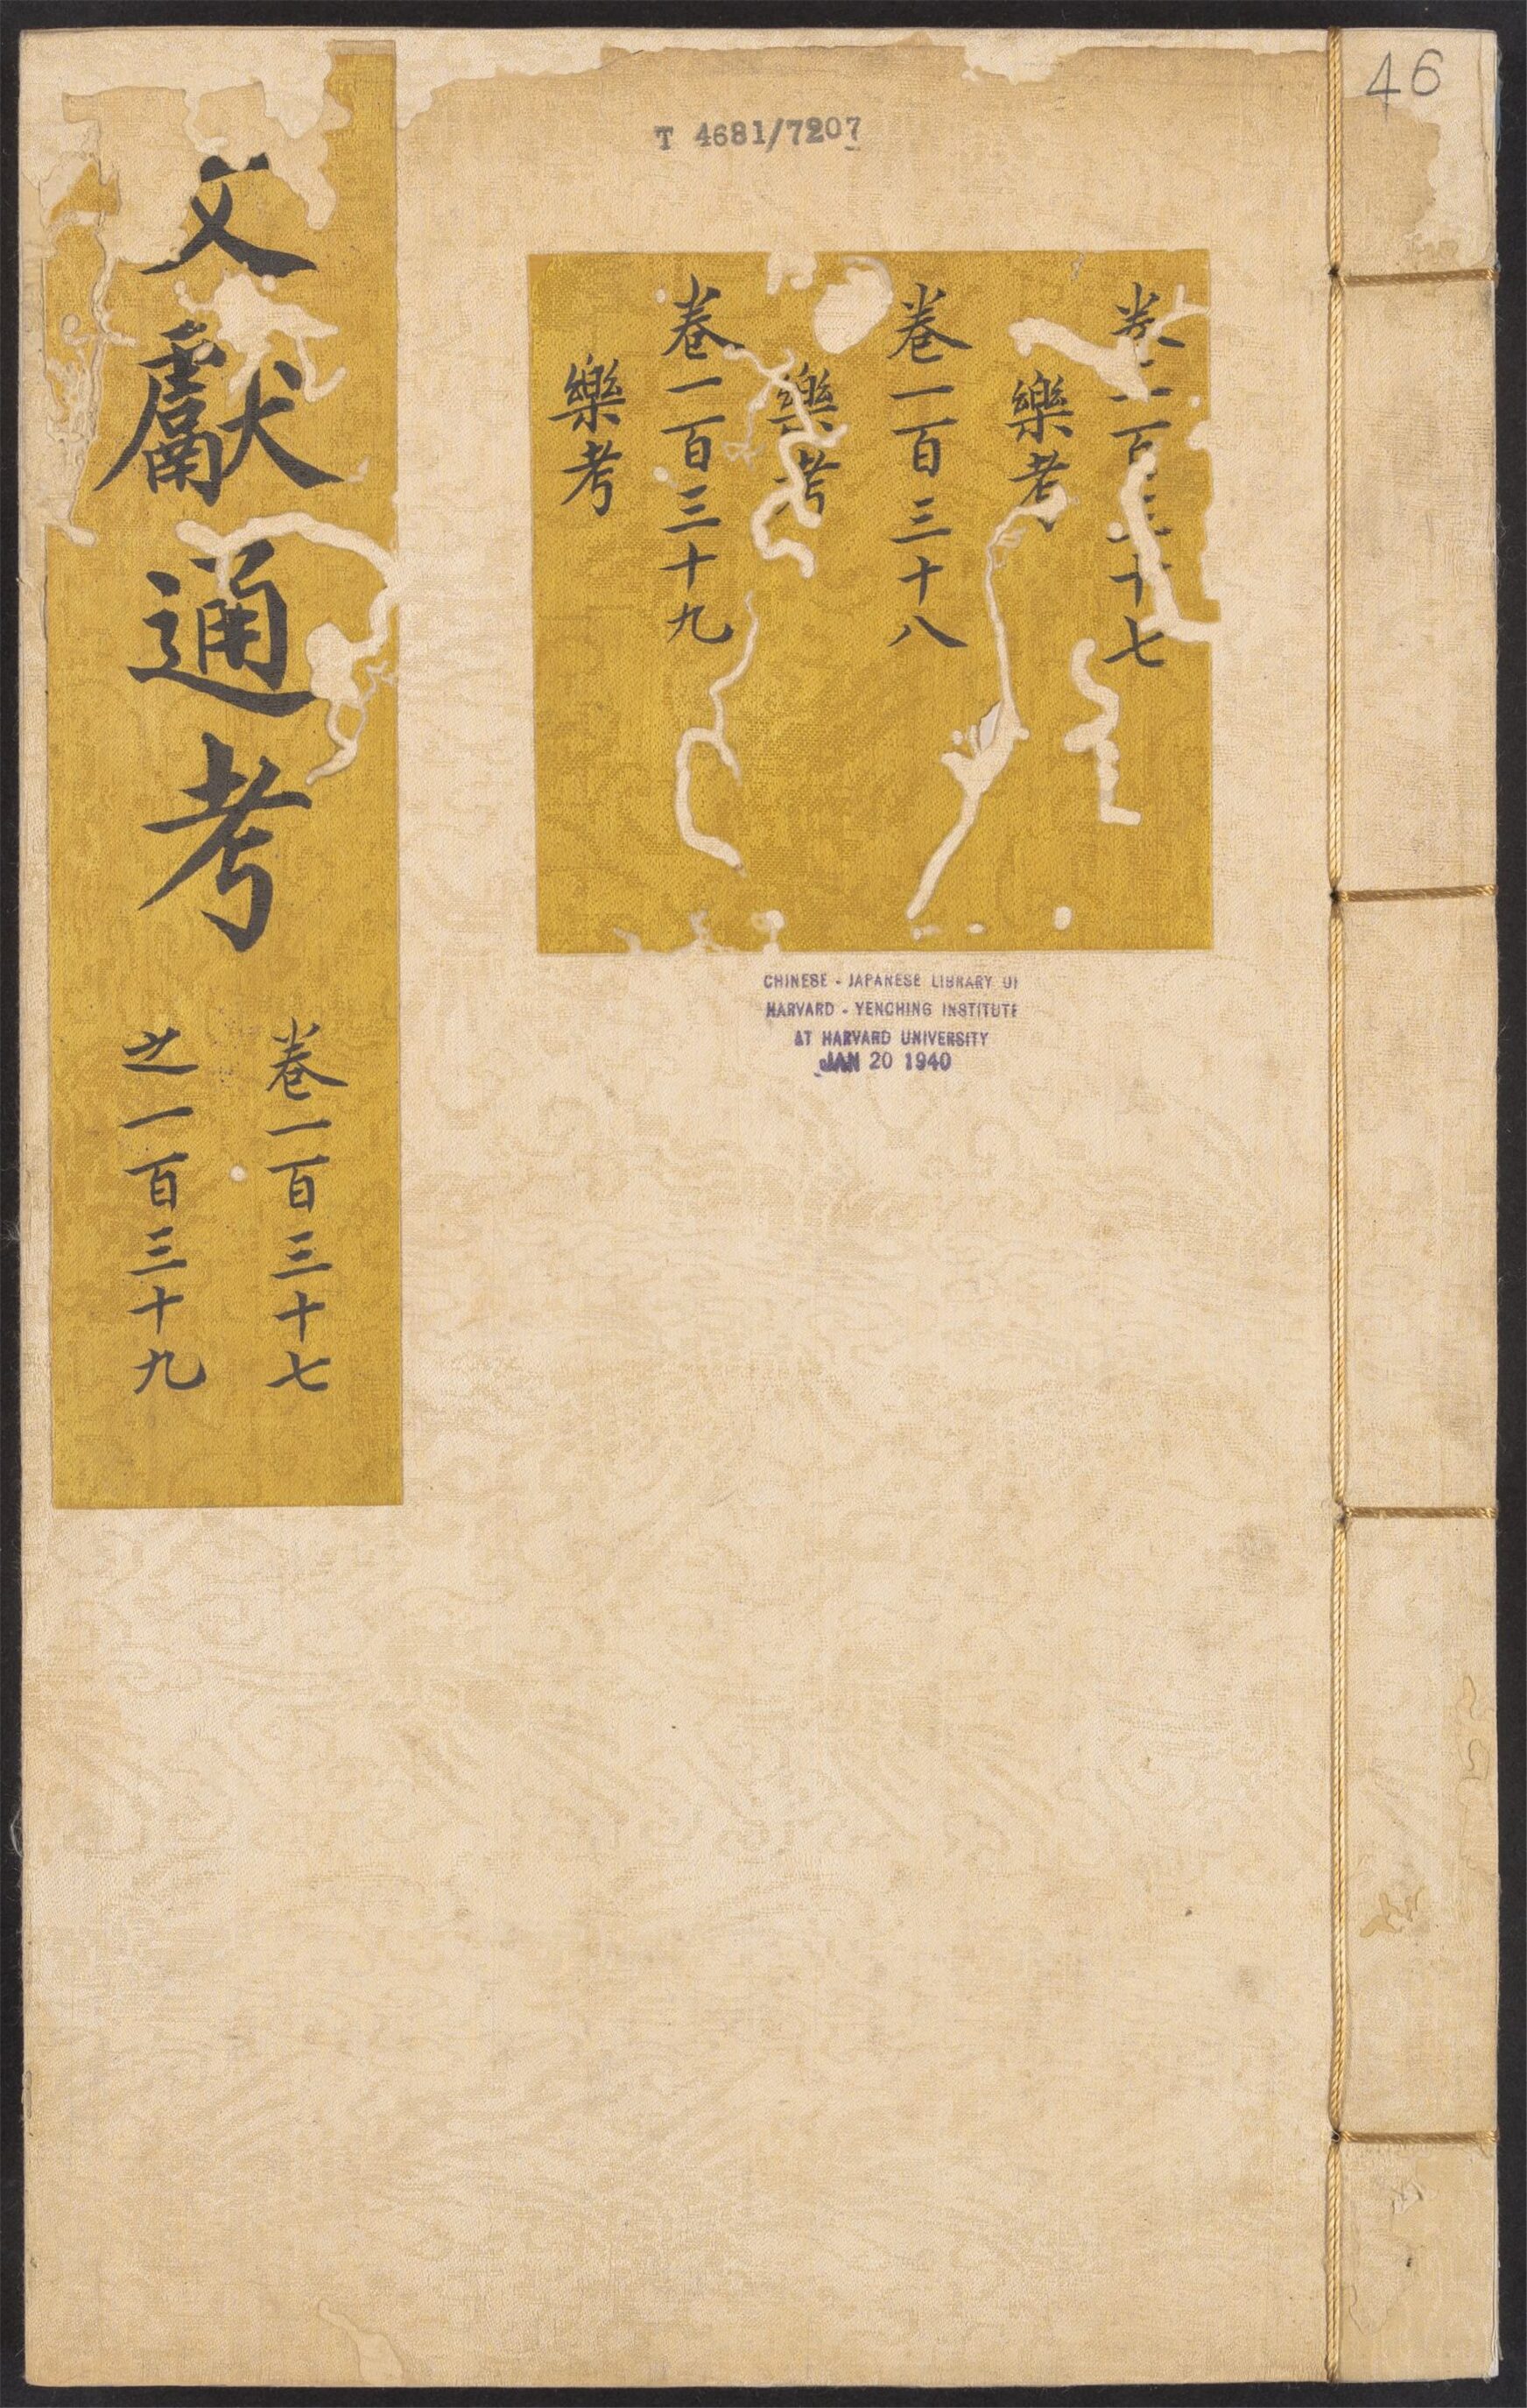 46
T 4681/7207
卷一百三十七
樂考
卷一百三十八
樂考
卷一百三十九
樂考
文獻通考
卷一百三十七
之一百三十九
CHINESE - JAPANESE LIBRARY OF
HARVARD - YENCHING INSTITUTE
AT HARVARD UNIVERSITY
JAN 20 1940